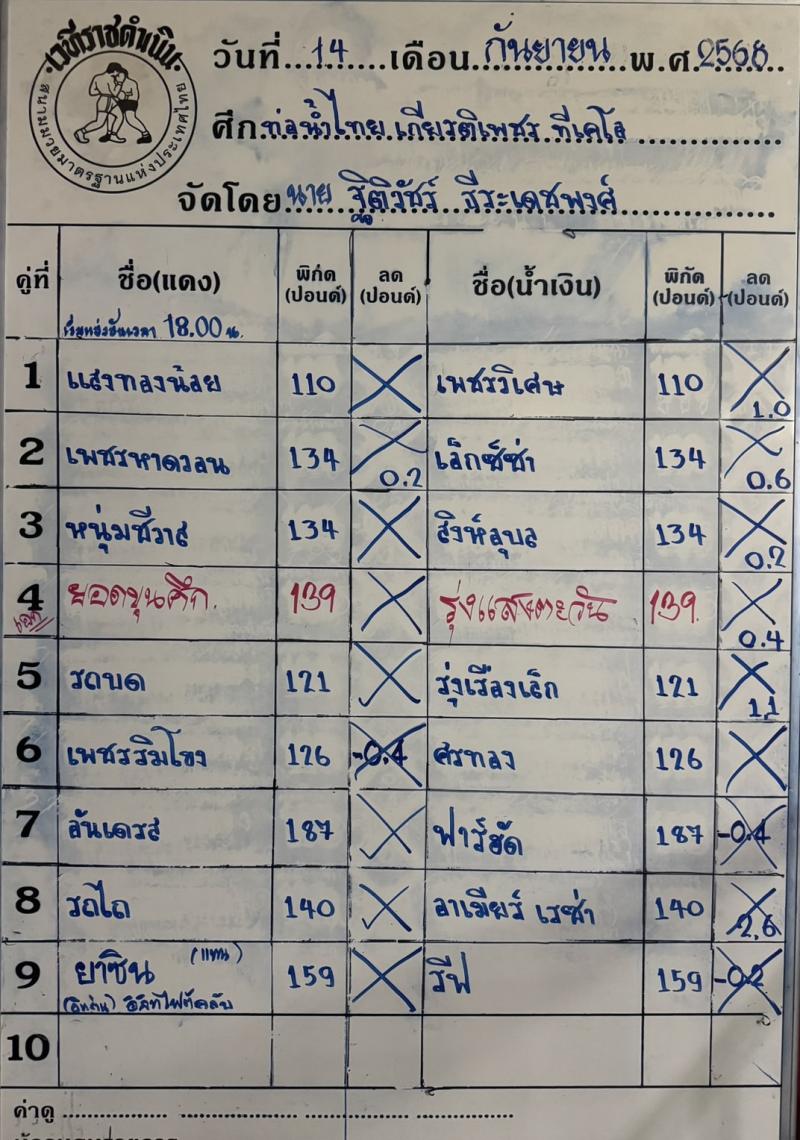 เวทีราชดำเนิน
สนามมวยมาตรฐานแห่งประเทศไทย
วันที่...14....เดือน.กันยายน.พ.ศ.2568
ศึก.ท่อน้ำไทย เกียรติเพชร ทีเคโอ
จัดโดย นาย ฐิติวัชร์ ธีระเดชพงศ์
คู่ที่ ชื่อ(แดง) พิกัด (ปอนด์) ลด (ปอนด์) ชื่อ(น้ำเงิน) พิกัด (ปอนด์) ลด (ปอนด์)
เวลา 18.00 น.
1 แสงทองน้อย 110 เพชรวิเศษ 110 1.0
2 เพชรหาดวอน 134 0.2 เล็กซ์ซ่า 134 0.6
3 หนุ่มชีวาส 134 สิงห์อุบล 134 0.2
4 ยอดขุนศึก 139 รุ่งแสงตะวัน 139 0.4
5 รถบด 121 รุ่งเรืองเล็ก 121 1.1
6 เพชรริมโขง 126 -0.4 ศรทอง 126
7 อันเดรส 187 ฟาร์ฮัด 187 -0.4
8 รถไถ 140 อาเมียร์ เรซ่า 140 2.6
9 ยาซิน (แทน) 159 รีฟ 159 -0.2
10
ค่าดู